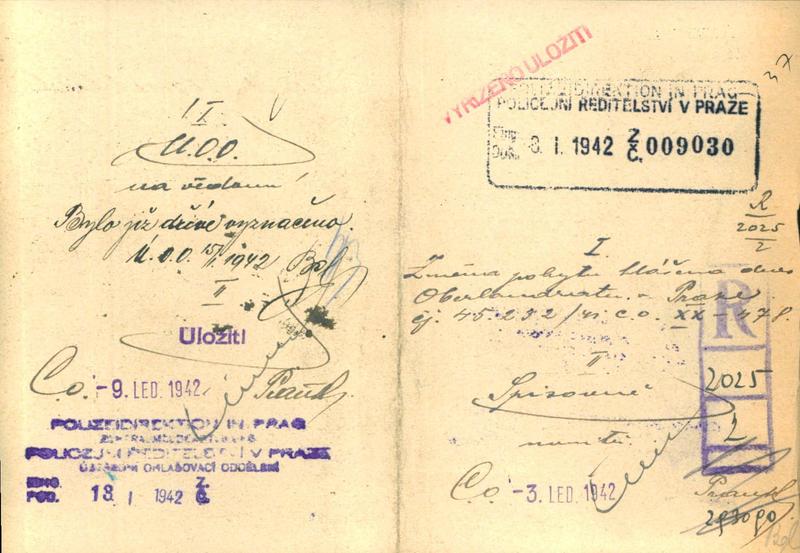 I
Ú.O.O.
na vědomí
Bylo již dříve vyznačeno.
Ú.O.O. 15/I. 1942
II
Uložiti
Co. -9. LED. 1942
POLIZEIDIREKTION IN PRAG
POLICEJNÍ ŘEDITELSTVÍ V PRAZE
ÚSTŘEDNÍ OHLAŠOVACÍ ODDĚLENÍ
EING.
POD. 13 I 1942 Z. Č.
VYŘÍZENO ULOŽITI
POLIZEIDIREKTION IN PRAG
POLICEJNÍ ŘEDITELSTVÍ V PRAZE
Eing.
Došlo 3. I. 1942 Z. Č. 009030
R
2025
2
I
Změna pobytu hlášena dnes
Oberlandratu v Praze
čj. 45232/41 C.O. XX-478.
R
II
2025
Spisovně
2
Co -3. LED. 1942